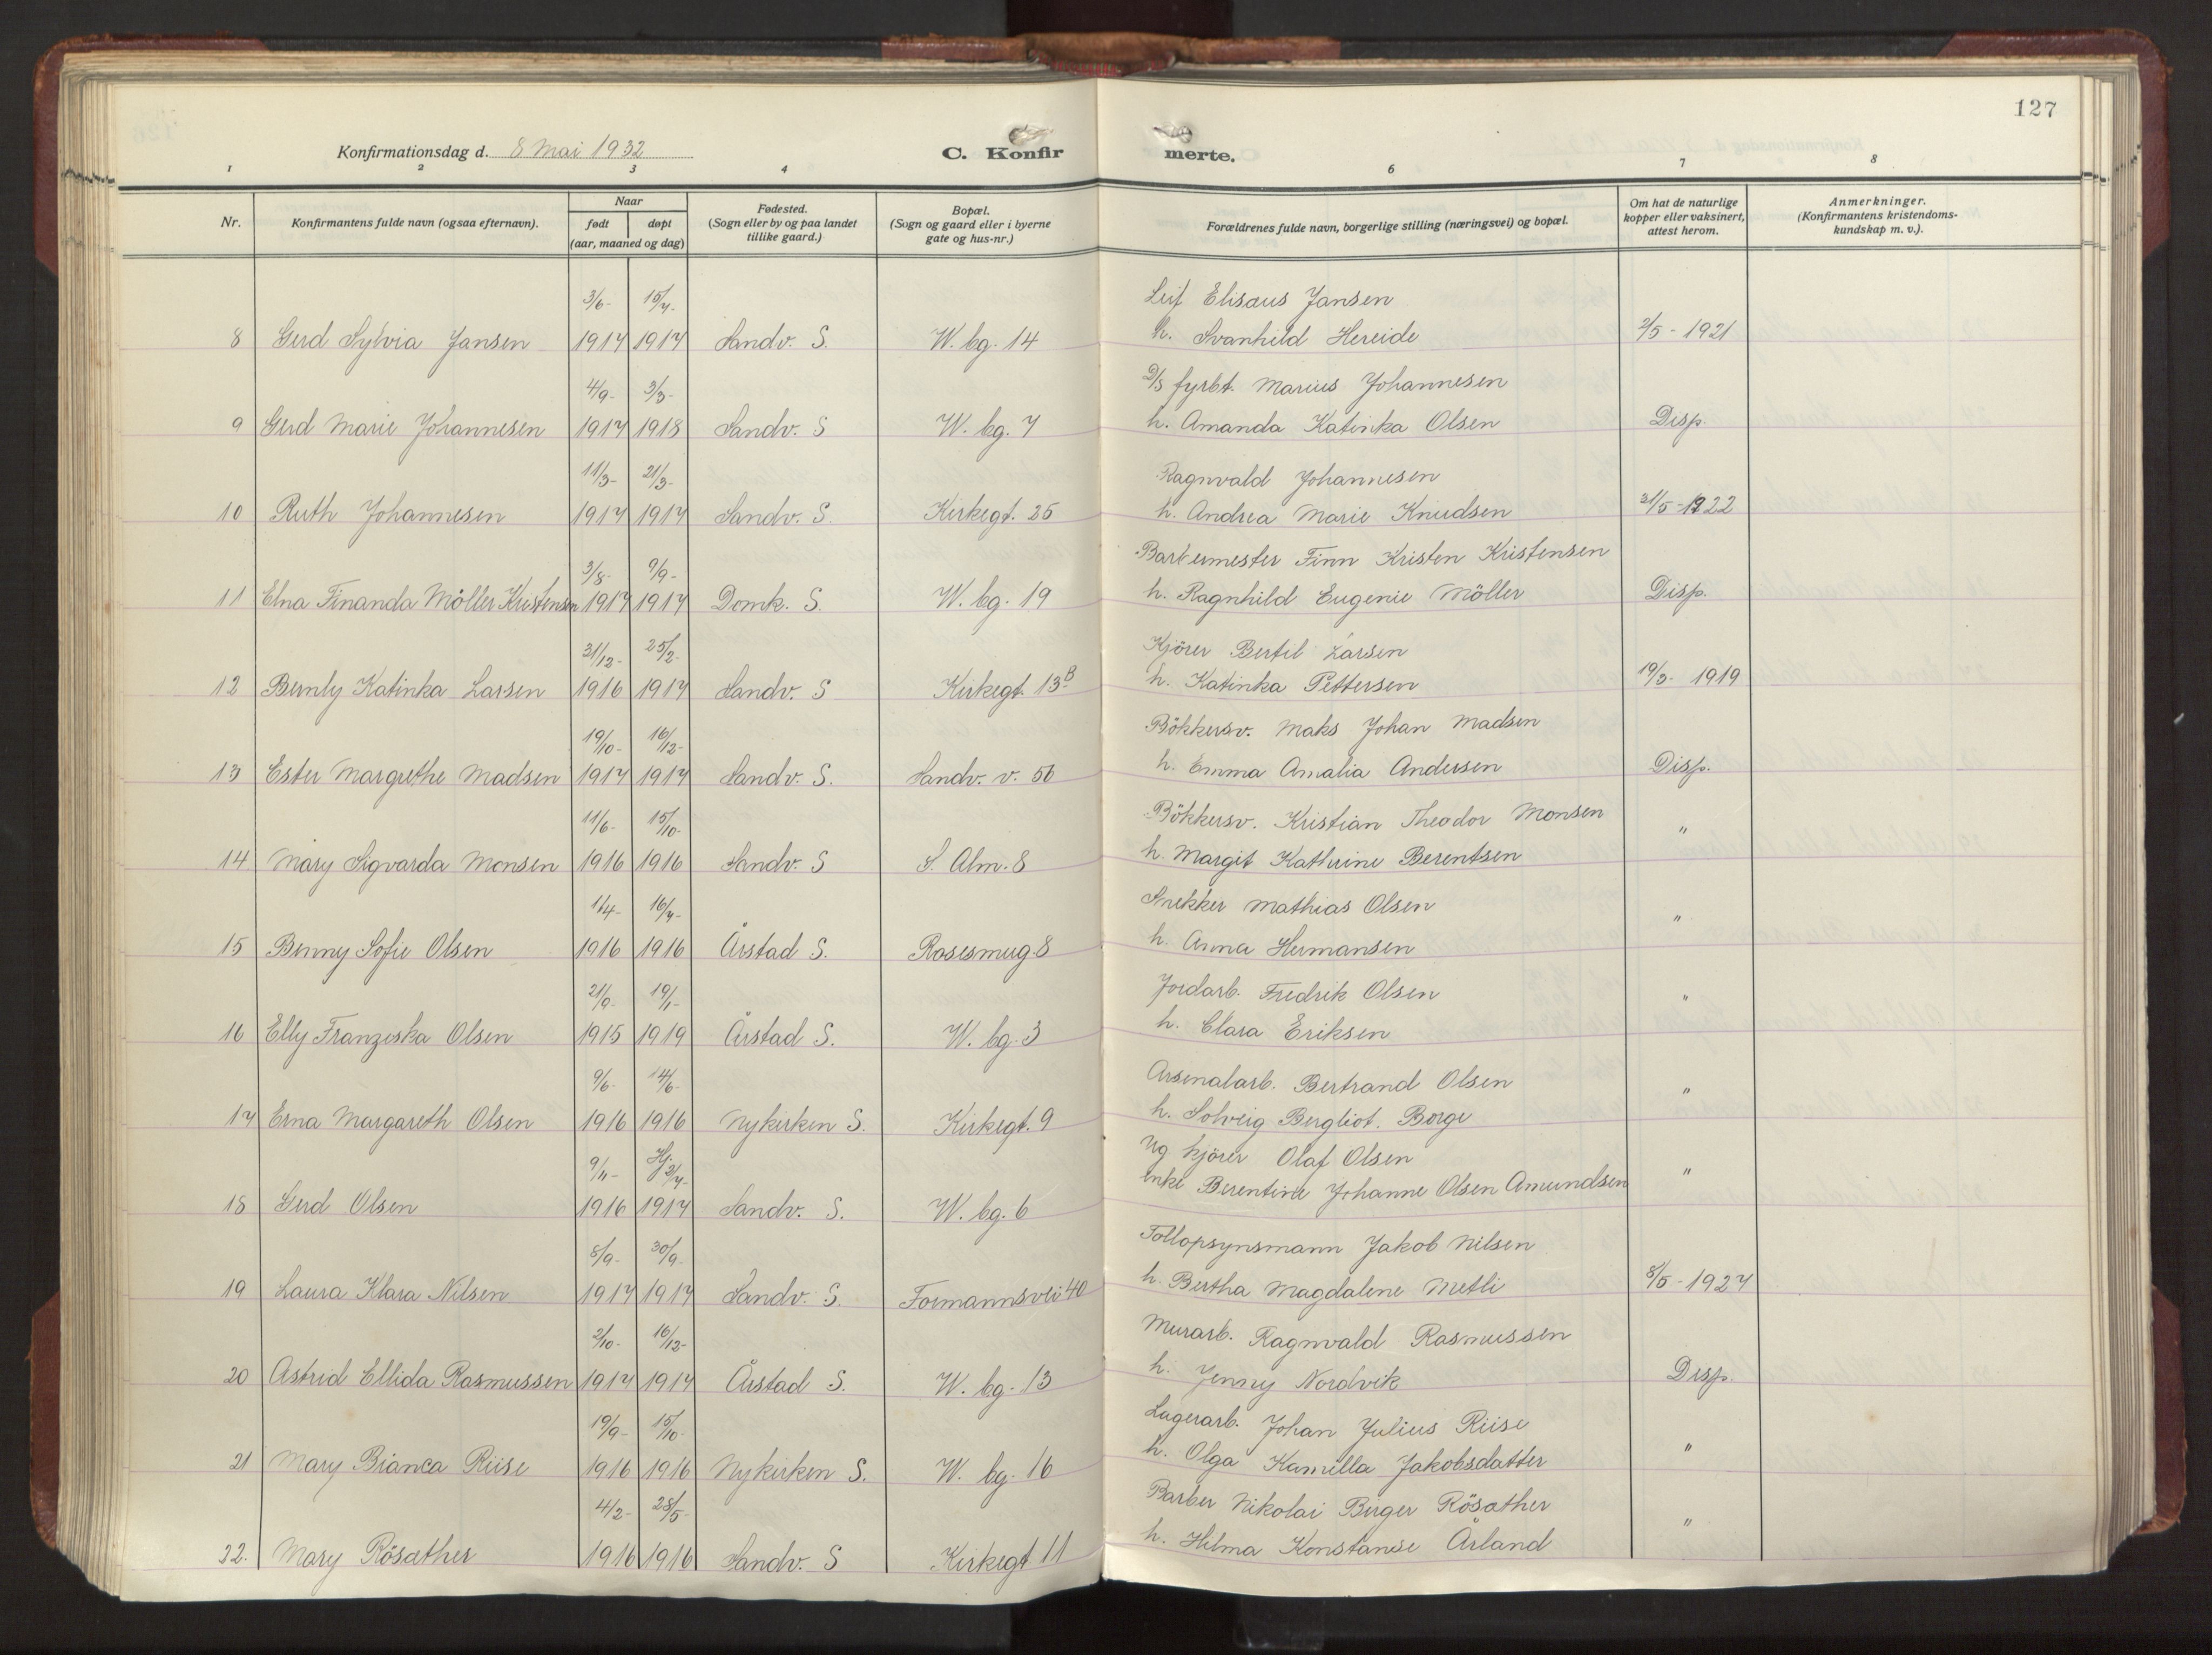 127
Konfirmationsdag d. 8 Mai 1932
C. Konfir merte.
1 2 3 4 6 7 8
Nr.
Konfirmantens fulde navn (ogsaa efternavn).
Naar
født døpt
(aar, maaned og dag)
Fødested.
(Sogn eller by og paa landet
tillike gaard.)
Bopæl.
(Sogn og gaard eller i byerne
gate og hus-nr.)
Forældrenes fulde navn, borgerlige stilling (næringsvei) og bopæl.
Om hat de naturlige
kopper eller vaksinert,
attest herom.
Anmerkninger.
(Konfirmantens kristendoms-
kundskap m. v.).
3/6- 15/7- Leif Elisæus Jansen
8 Gerd Sylvia Jansen 1917 1917 Sandv. S. W. bg. 14 h. Svanhild Hereide 2/5- 1921
4/9- 3/3- D/S fyrbt. Marius Johannesen
9 Gerd Marie Johannesen 1917 1918 Sandv. S W. bg. 7 h. Amanda Katinka Olsen Disp.
11/3- 21/3- Ragnvald Johannesen
10 Ruth Johannesen 1917 1917 Sandv. S. Kirkegt. 25 h. Andrea Marie Knudsen 31/5-1922
3/8- 9/9- Barbermester Finn Kristen Kristensen
11 Elna Finanda Möller Kristensen 1917 1917 Domk. S. W. bg. 19 h. Ragnhild Eugenie Möller Disp.
31/12- 25/2- Kjörer Bertil Larsen
12 Bernly Katinka Larsen 1916 1917 Sandv. S Kirkegt. 13B h. Katinka Pettersen 19/3- 1919
19/10- 16/12- Bökkersv. Maks Johan Madsen
13 Ester Margrethe Madsen 1917 1917 Sandv. S. Sandv. v. 56 h. Emma Amalia Andersen Disp.
11/6- 15/10- Bökkersv. Kristian Theodor Monsen
14 Mary Sigvarda Monsen 1916 1916 Sandv. S S. Alm. 8 h. Margit Kathrine Berentsen "
1/4- 16/7- Snekker Mathias Olsen
15 Benny Sofie Olsen 1916 1916 Årstad S. Rosesmug. 8 h. Anna Hermansen "
21/9- 19/1- Jordarb. Fredrik Olsen
16 Elly Franziska Olsen 1915 1919 Årstad S. W. bg. 3 h. Clara Eriksen "
9/6- 14/6- Arsenalarb. Bertrand Olsen
17 Erna Margareth Olsen 1916 1916 Nykirken S. Kirkegt. 9 h. Solveig Bergliot. Borge "
9/11- Hj. 2/7- Ug kjörer Olaf Olsen
18 Gerd Olsen 1916 1917 Sandv. S. W. bg. 6 enke Berentine Johanne Olsen Amundsen "
8/9- 30/9- Tollopsynsmann Jakob Nilsen
19 Laura Klara Nilsen 1917 1917 Sandv. S. Formannsvei 40 h. Bertha Magdalene Metli 8/5- 1927
2/10- 16/12- Murarb. Ragnvald Rasmussen
20 Astrid Ellida Rasmussen 1917 1917 Årstad S. W. bg. 13 h. Jenny Nordvik Disp.
19/9- 15/10- Lagerarb. Johan Julius Riise
21 Mary Bianca Riise 1916 1916 Nykirken S. W. bg. 16 h. Olga Kamilla Jakobsdatter "
4/2- 28/5- Barber Nikolai Birger Rösæther
22. Mary Rösæther 1916 1916 Sandv. S Kirkegt 11 h. Hilma Konstanse Årland "